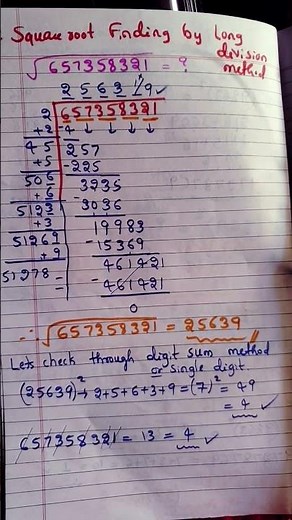 Square root Finding by Long
division
method
√657358321 = ?
2 5 6 3 9 ✓
2 657358321
+2 -4 ↓ ↓ ↓ ↓
45 257
+5 -225
506 3235
+6 - 3036
5123 19983
+3 -15369
51269 461421
+9 -461421
51278 0
∴ √657358321 = 25639
Lets check through digit sum method
or single digit.
(25639)² → 2+5+6+3+9 = (7)² = 49
= 4 ✓
657358321 = 13 = 4 ✓